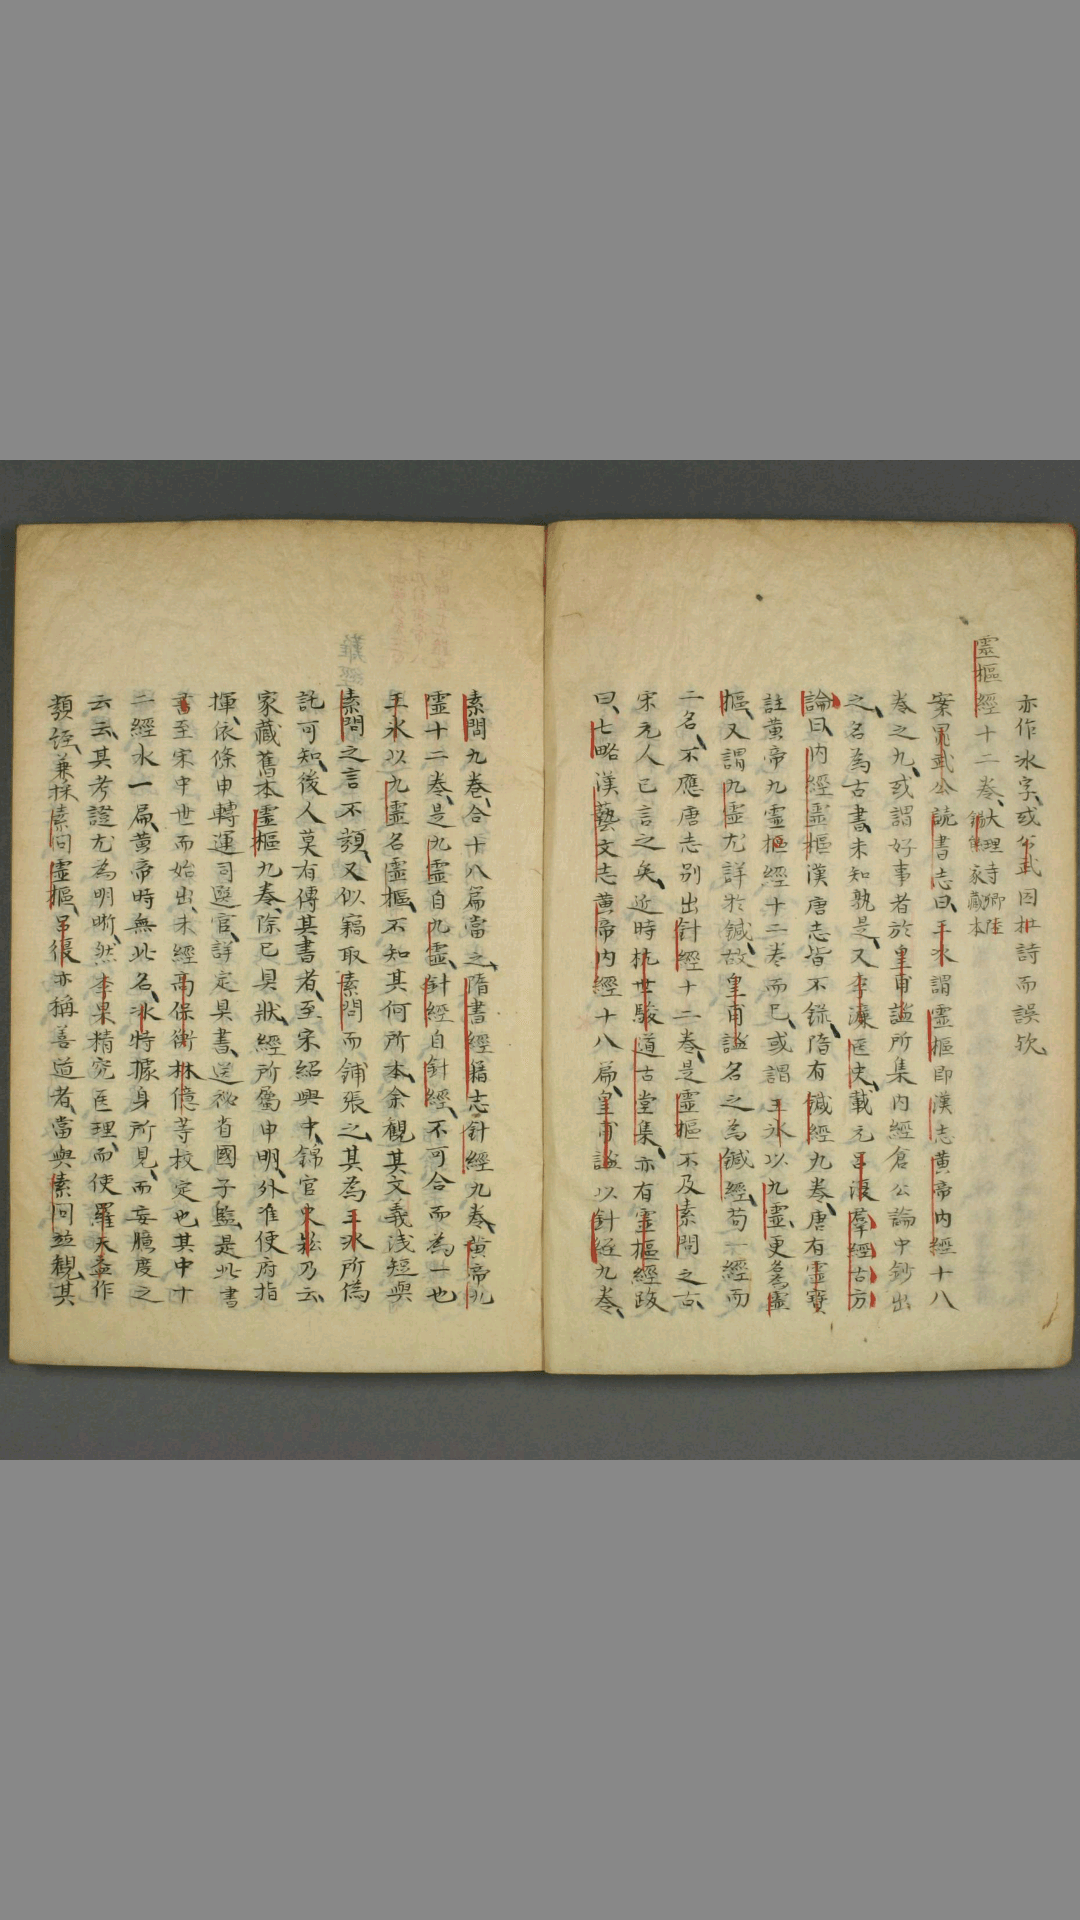 亦作冰字、或分武因杜詩而誤欤
靈樞經十二卷、大理寺卿陸錫熊家藏本
案晁武公読書志曰、王冰謂靈樞即漢志黄帝内經十八
卷之九、或謂好事者於皇甫謐所集内經倉公論中鈔出
之、名為古書、未知孰是、又李濂医史、載元呂復羣經古方
論曰、内經霊樞漢唐志皆不錄、隋有鍼經九巻、唐有霊寶
註黄帝九霊樞經十二巻而已、或謂王冰以九霊、更名為霊
樞、又謂九霊尤詳於鍼、故皇甫謐名之為鍼經、苟一經而
二名、不應唐志別出針經十二卷、是霊樞不及素問之古、
宋元人已言之矣、近時杭世駿道古堂集、亦有霊樞經跋
曰、七略漢藝文志黄帝内經十八扁、皇甫謐以針經九巻、
素問九卷、合十八篇當之、隋書經籍志針經九巻、黄帝九
霊十二巻、是九霊自九霊、針經自針經、不可合而為一也
王氷以九霊名霊樞、不知其何所本、余観其文義浅短與
素問之言不類、又似竊取素問而鋪張之、其為王冰所偽
託可知、後人莫有傳其書者、至宋紹興中、錦官史崧乃云、
家藏舊本霊樞九巻、除已具狀、經所屬申明、外准使府指
揮、依條申轉運司選官、詳定具書、送祕省國子監、是此書
書至宋中世而始出、未經高保衡林億等校定也其中十
二經水一扁、黄帝時無此名、冰特據身所見、而妄臆度之
云云、其考證尤為明晰、然李杲精究医理、而使羅天益作
類經、兼採素问霊樞、呂復亦稱善道者、當與素问竝観、其